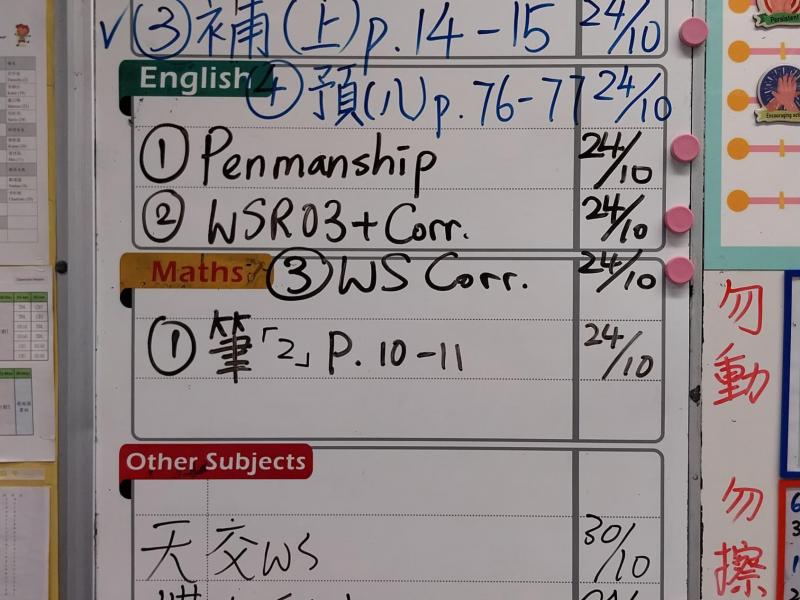 √ ③ 補(上)p.14-15 24/10
English ④ 預(八)p.76-77 24/10
① Penmanship 24/10
② WSR03+Corr. 24/10
Maths ③ WS Corr. 24/10
① 筆「2」P.10-11 24/10
Other Subjects
天 交WS 30/10
勿動
勿擦
Persistent
Encouraging